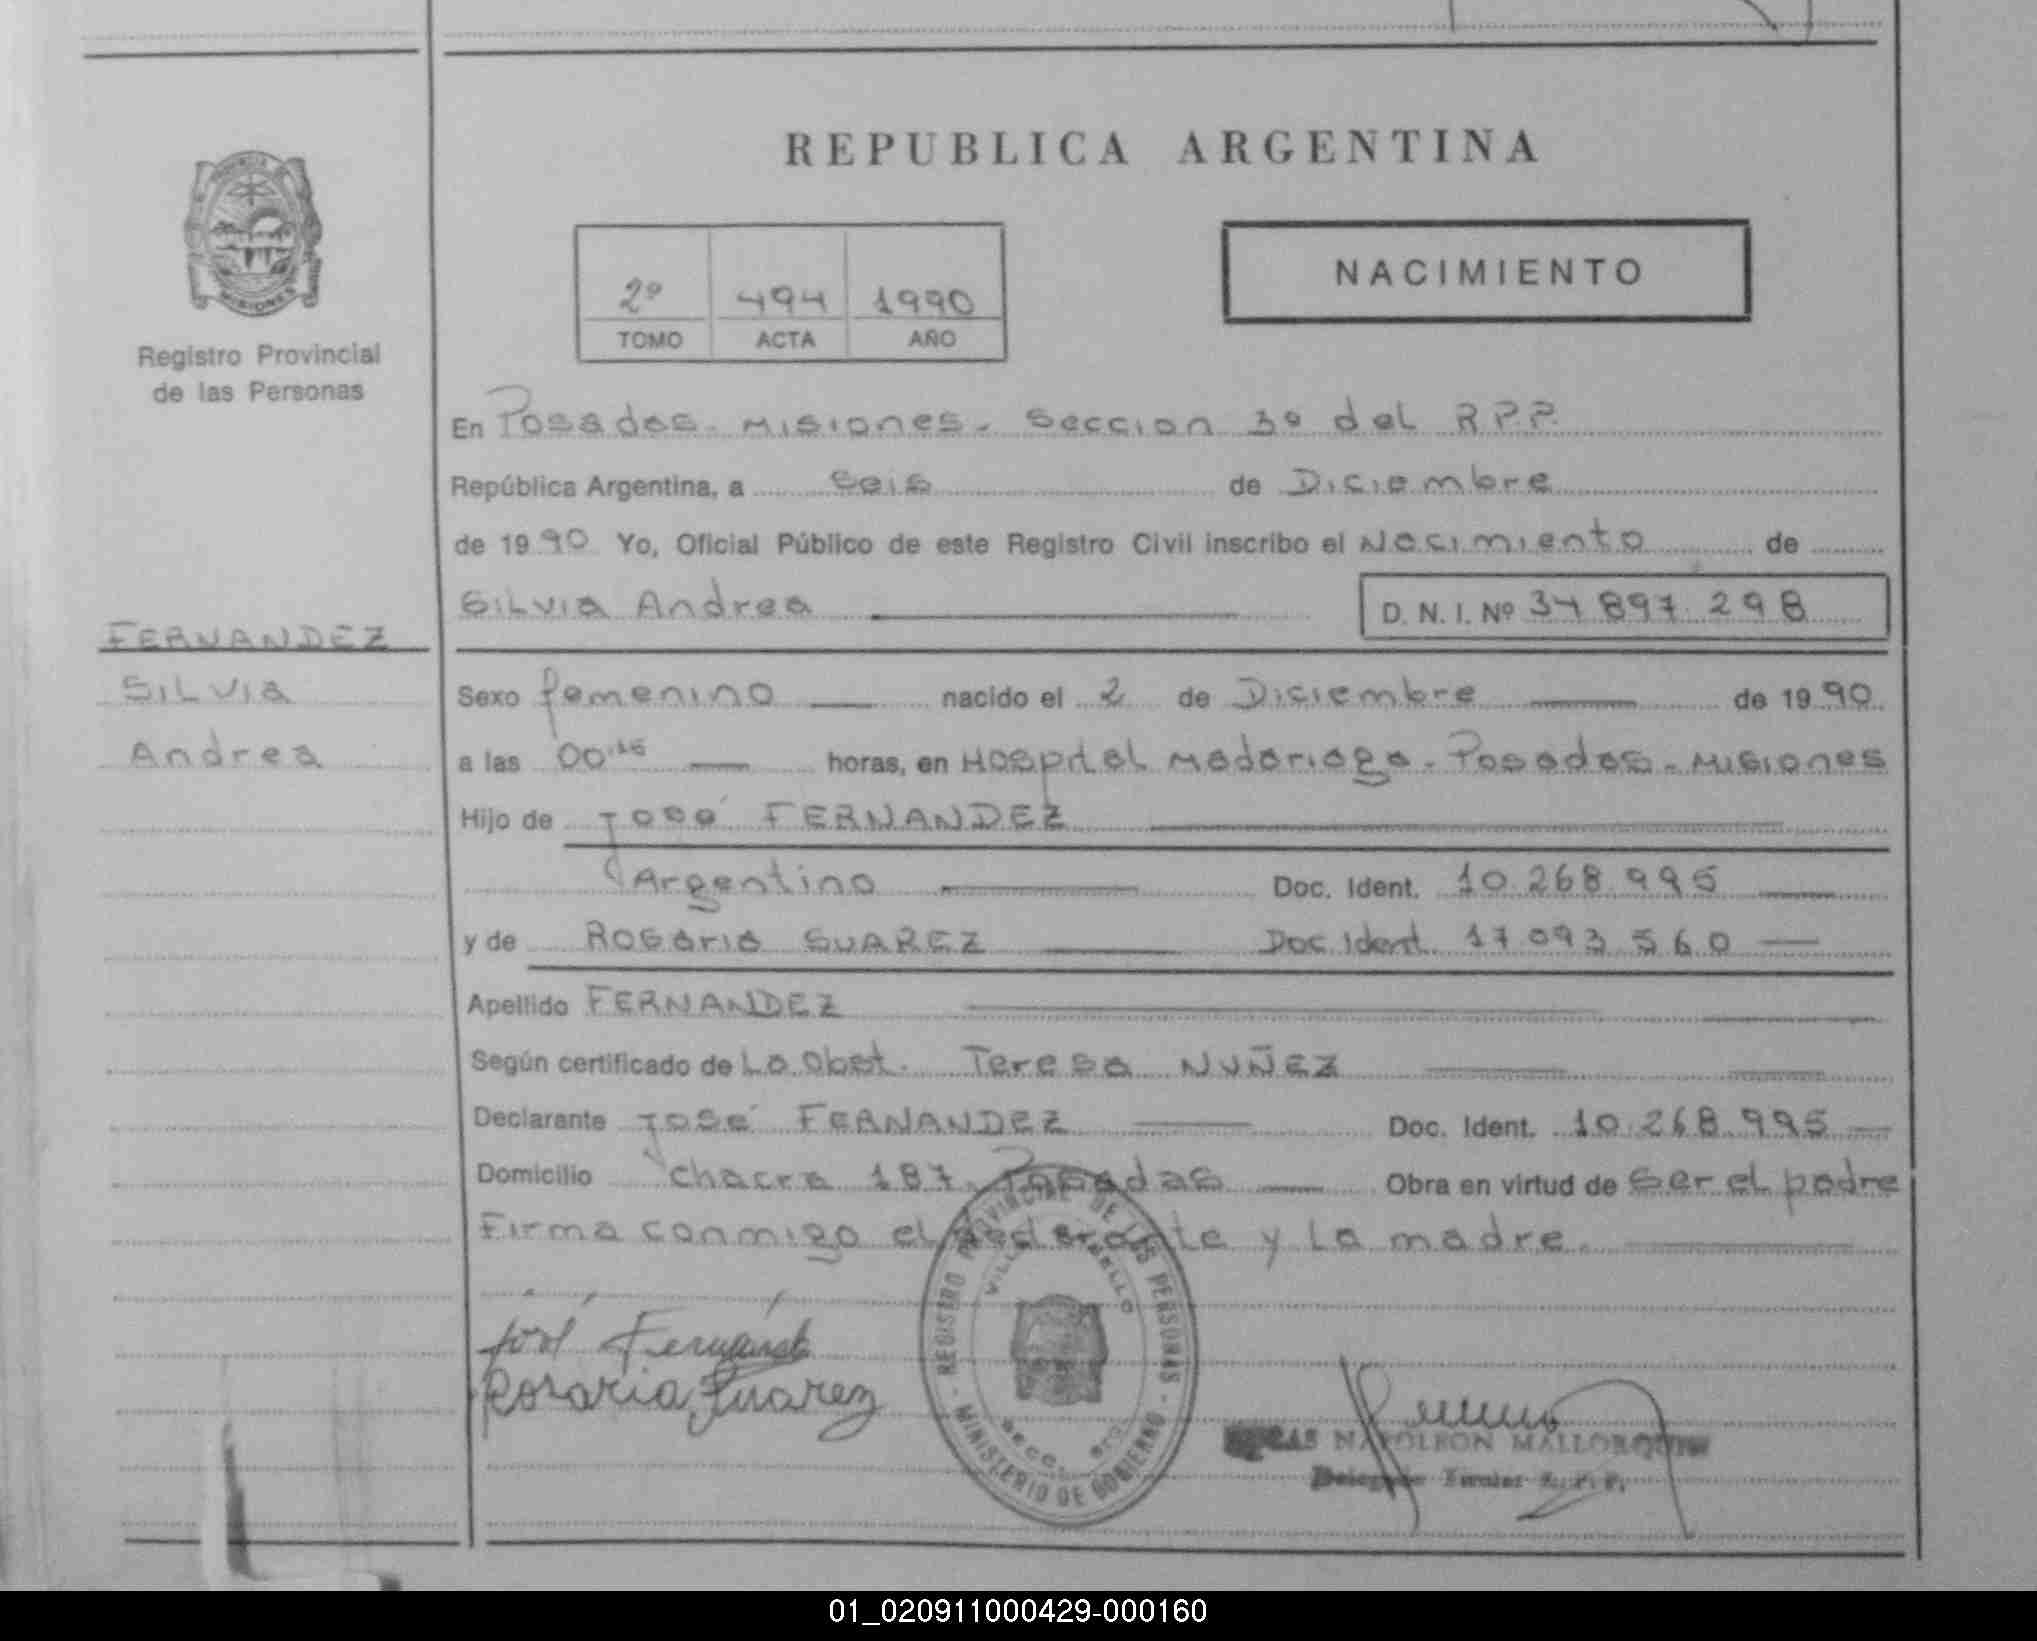 REPUBLICA ARGENTINA
PROVINCIA
MISIONES
Registro Provincial
de las Personas
2º 494 1990
TOMO ACTA AÑO
NACIMIENTO
En Posadas. Misiones. Seccion 3º del R.P.P.
República Argentina, a seis de Diciembre
de 1990 Yo, Oficial Público de este Registro Civil inscribo el Nacimiento de
Silvia Andrea D. N. I. Nº 34 897 298
FERNANDEZ
Silvia
Andrea
Sexo femenino nacido el 2 de Diciembre de 1990
a las 00 horas, en Hospital Madariaga. Posadas. Misiones
Hijo de José FERNANDEZ
Argentino Doc. Ident. 10.268.995
y de Rosaria SUAREZ Doc. Ident. 17 093 560
Apellido FERNANDEZ
Según certificado de La Obst. Teresa NUÑEZ
Declarante José FERNANDEZ Doc. Ident. 10.268.995
Domicilio chacra 187. Posadas Obra en virtud de ser el padre
Firma conmigo el declarante y la madre.
José Fernández
Rosaria Suarez
REGISTRO PROVINCIAL DE LAS PERSONAS
MINISTERIO DE GOBIERNO
NAPOLEON MALLORQUIN
Delegado Titular R. P. P.
01_020911000429-000160